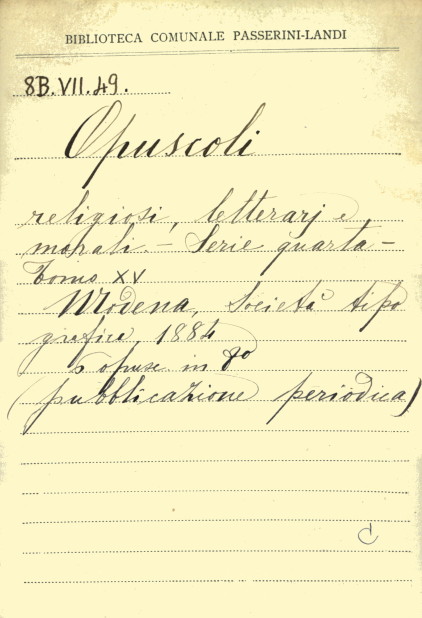 BIBLIOTECA COMUNALE PASSERINI-LANDI
8B.VII.49.
Opuscoli
religiosi, letterarj e
morali. - Serie quarta -
Tomo XV
Modena, Società tipo
grafica, 1884
5 opusc in 8º
(pubblicazione periodica)
C